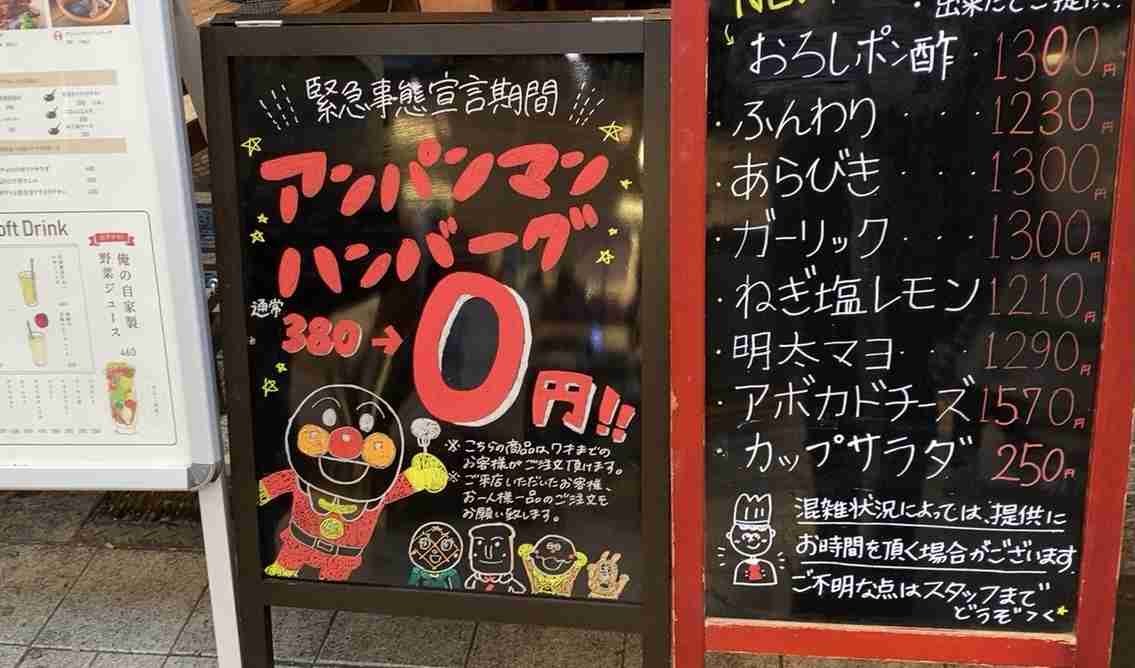 oft Drink
俺の自家製
野菜ジュース
460
緊急事態宣言期間
アンパンマン
ハンバーグ
通常
380→0円!!
※こちらの商品は、7才までの
お客様がご注文頂けます。
※ご来店いただいたお客様、
お一人様一品のご注文も
お願い致します。
・おろしポン酢・1300円
・ふんわり・・・1230円
・あらびき・・・1300円
・ガーリック・・・1300円
・ねぎ塩レモン1210円
・明太マヨ・・・1290円
・アボカドチーズ1570円
・カップサラダ 250円
混雑状況によっては、提供に
お時間を頂く場合がございます
ご不明な点はスタッフまで
どうぞ